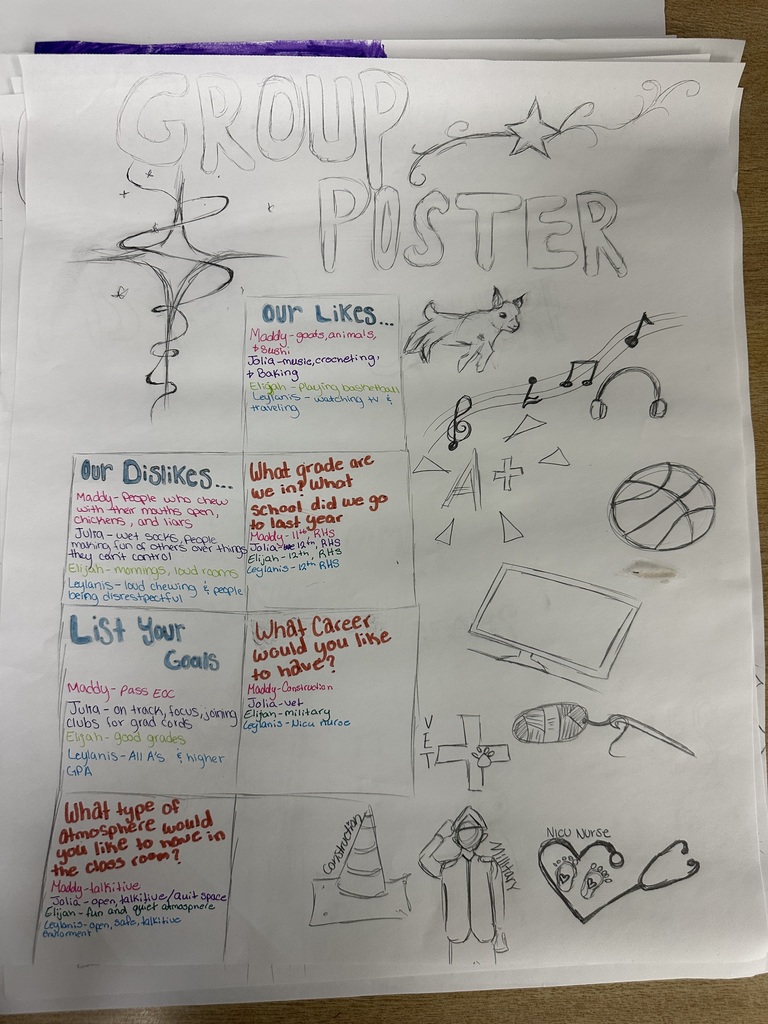 GROUP
POSTER
OUR LIKES...
Maddy-goats, animals,
& Sushi
Jolia-music, crocheting,
& Baking
Elijah - Playing basketball
Leylanis - watching tv &
traveling
OUR DISLIKES...
Maddy-People who chew
with their mouths open,
chickens, and liars
Julia - wet socks, people
making fun of others over things
they can't control
Elijah - mornings, loud rooms
Leylanis - loud chewing & people
being disrestpectful
What grade are
we in? What
school did we go
to last year
Maddy-11th RHS
Jolia- 12th, RHS
Elijah - 12th, RHS
Leylanis - 12th RHS
LIST YOUR
GOALS
Maddy-Pass EOC
Julia - on track, focus, joining
clubs for grad cords
Elijah - good grades
Leylanis - All A's & higher
GPA
What Career
would you like
to have?
Maddy-Construction
Jolia-vet
Elijah-military
Leylanis-Nicu nurse
What type of
atmosphere would
you like to have in
the class room?
Maddy-talkitive
Jolia - open, talkitive/quit space
Elijah - fun and quiet atmosphere
Leylanis-open, safe, talkitive
enviorment
A+
VET
Construction
Military
NICU NURSE